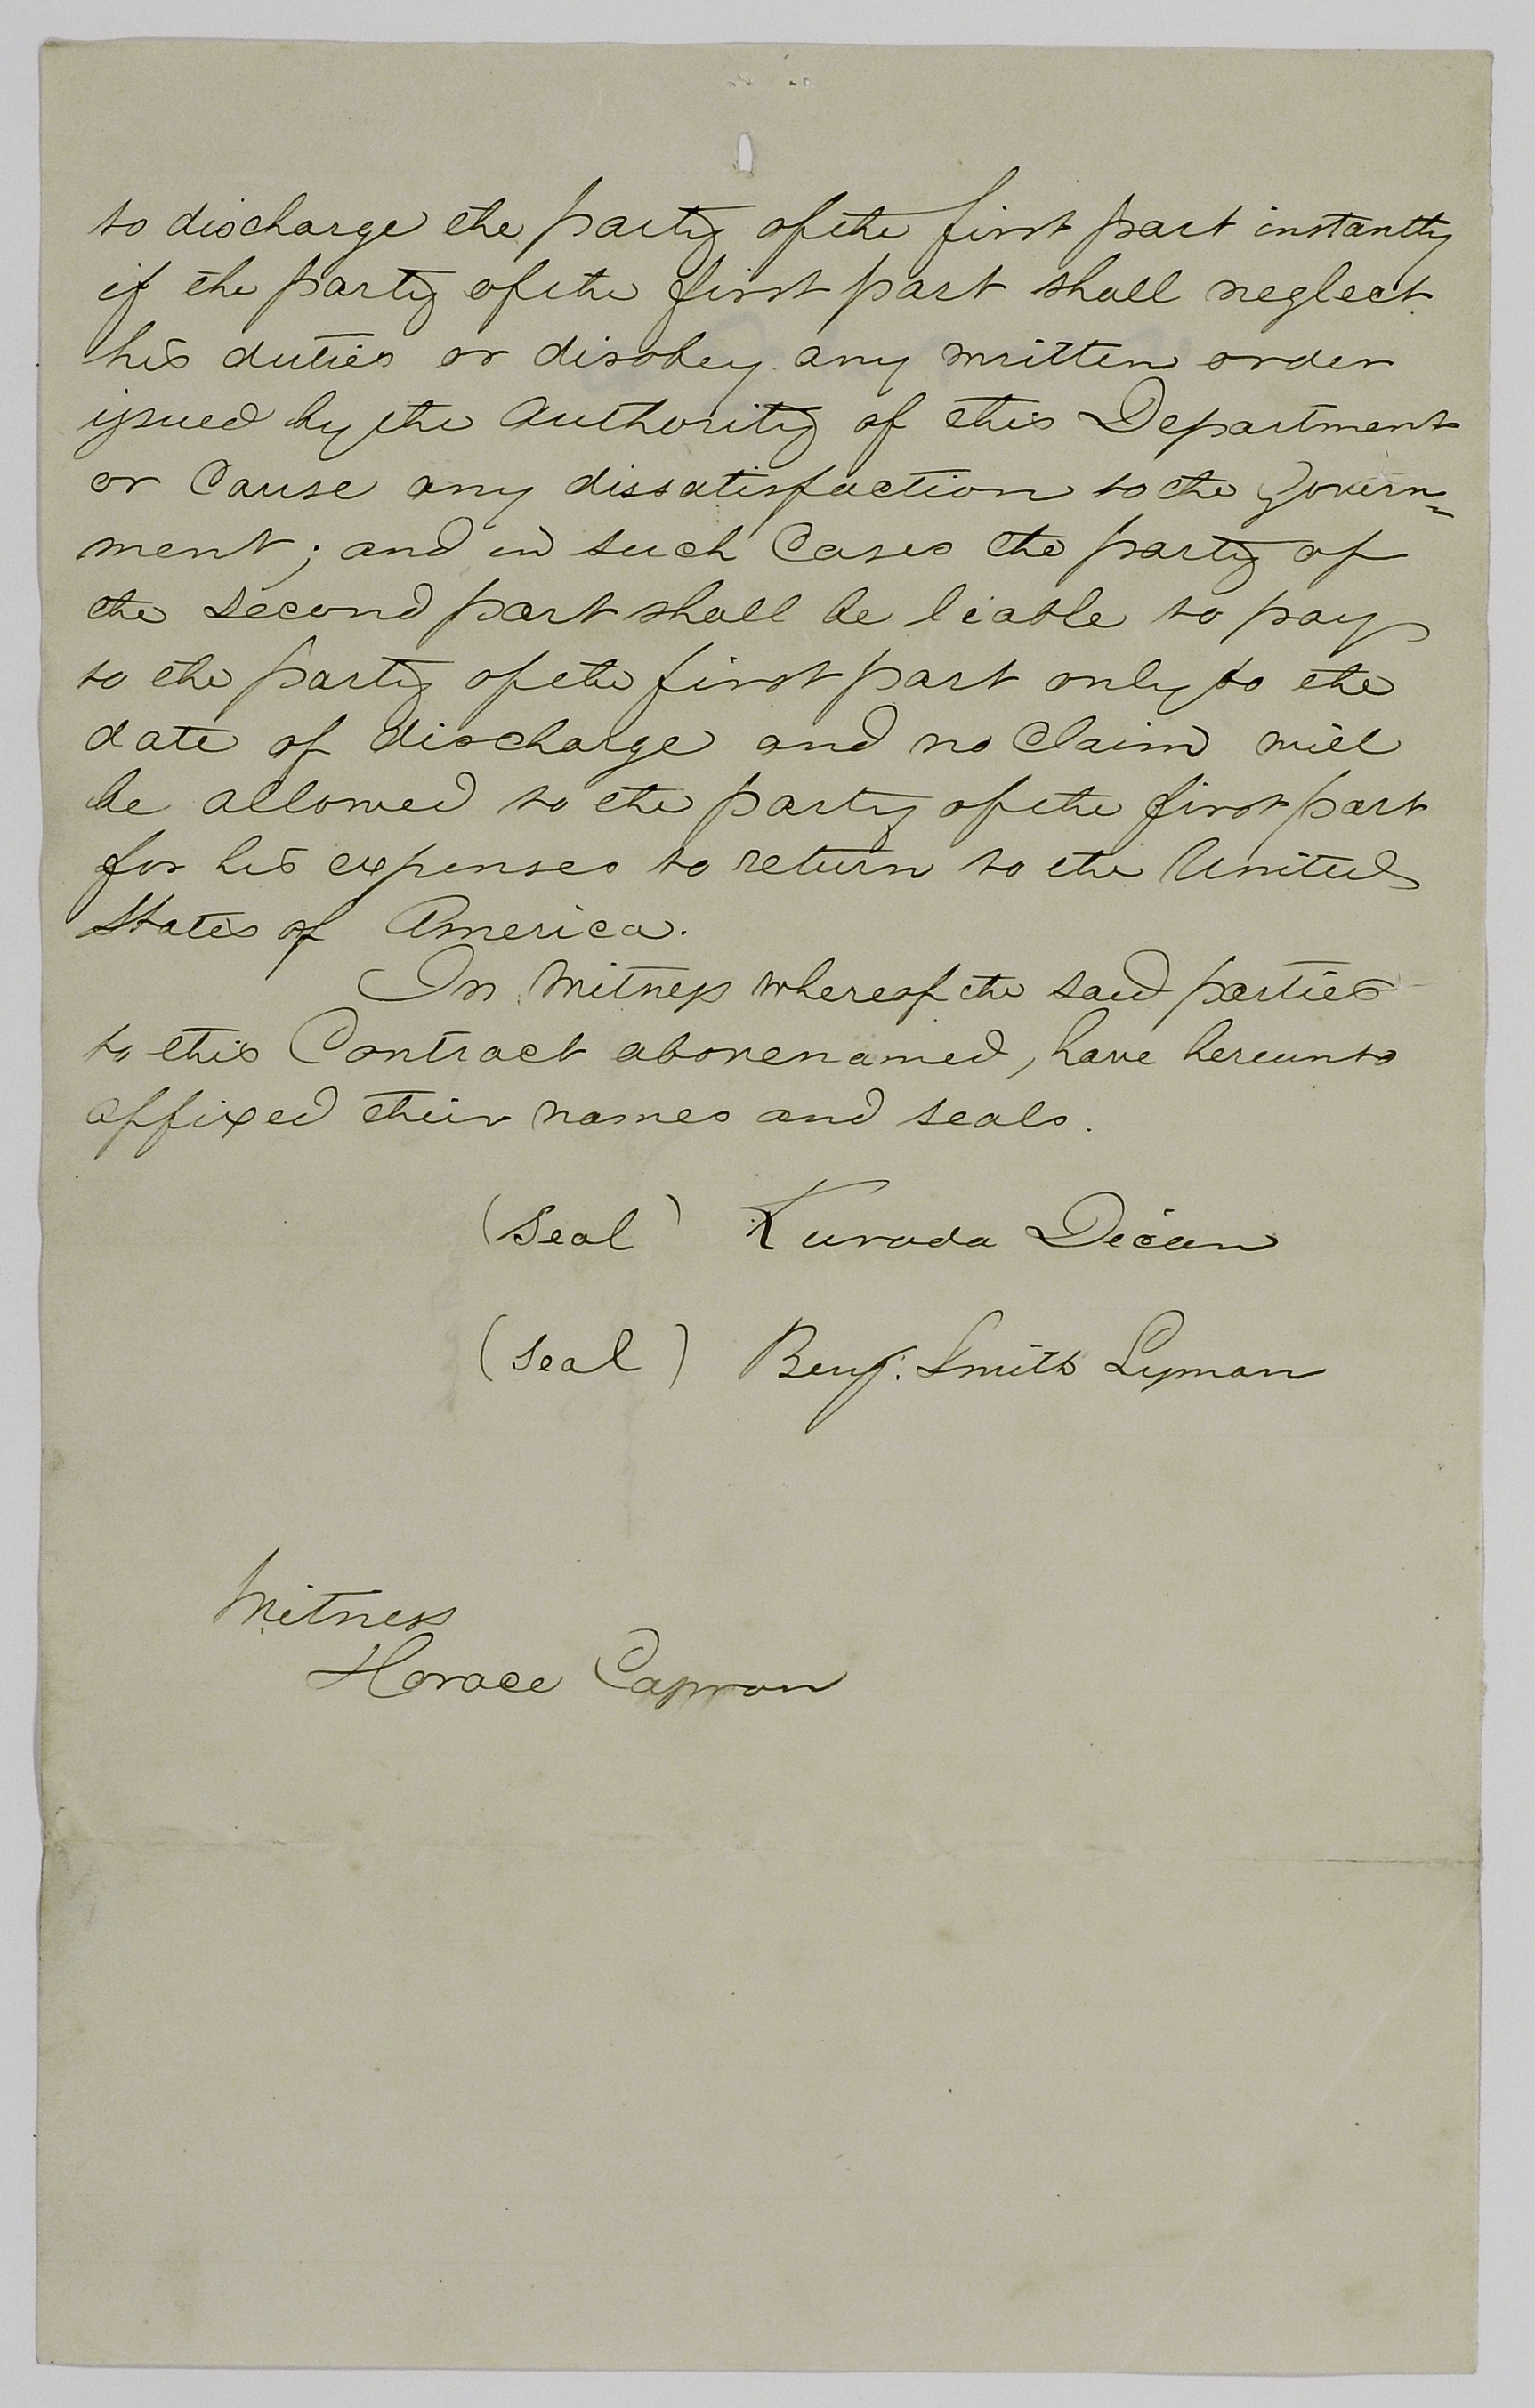 to discharge the party of the first part instantly
if the party of the first part shall neglect
his duties or disobey any written order
issued by the Authority of this Department
or Cause any dissatisfaction to the Govern=
ment; and in such Cases the party of
the second part shall be liable to pay
to the party of the first part only to the
date of discharge and no Claim will
be allowed to the party of the first part
for his expenses to return to the United
States of America.
In Witness whereof the said parties
to this Contract abovenamed, have hereunto
affixed their names and seals.
(Seal) Kuroda Dican
(Seal) Benj. Smith Lyman
Witness
Horace Capron